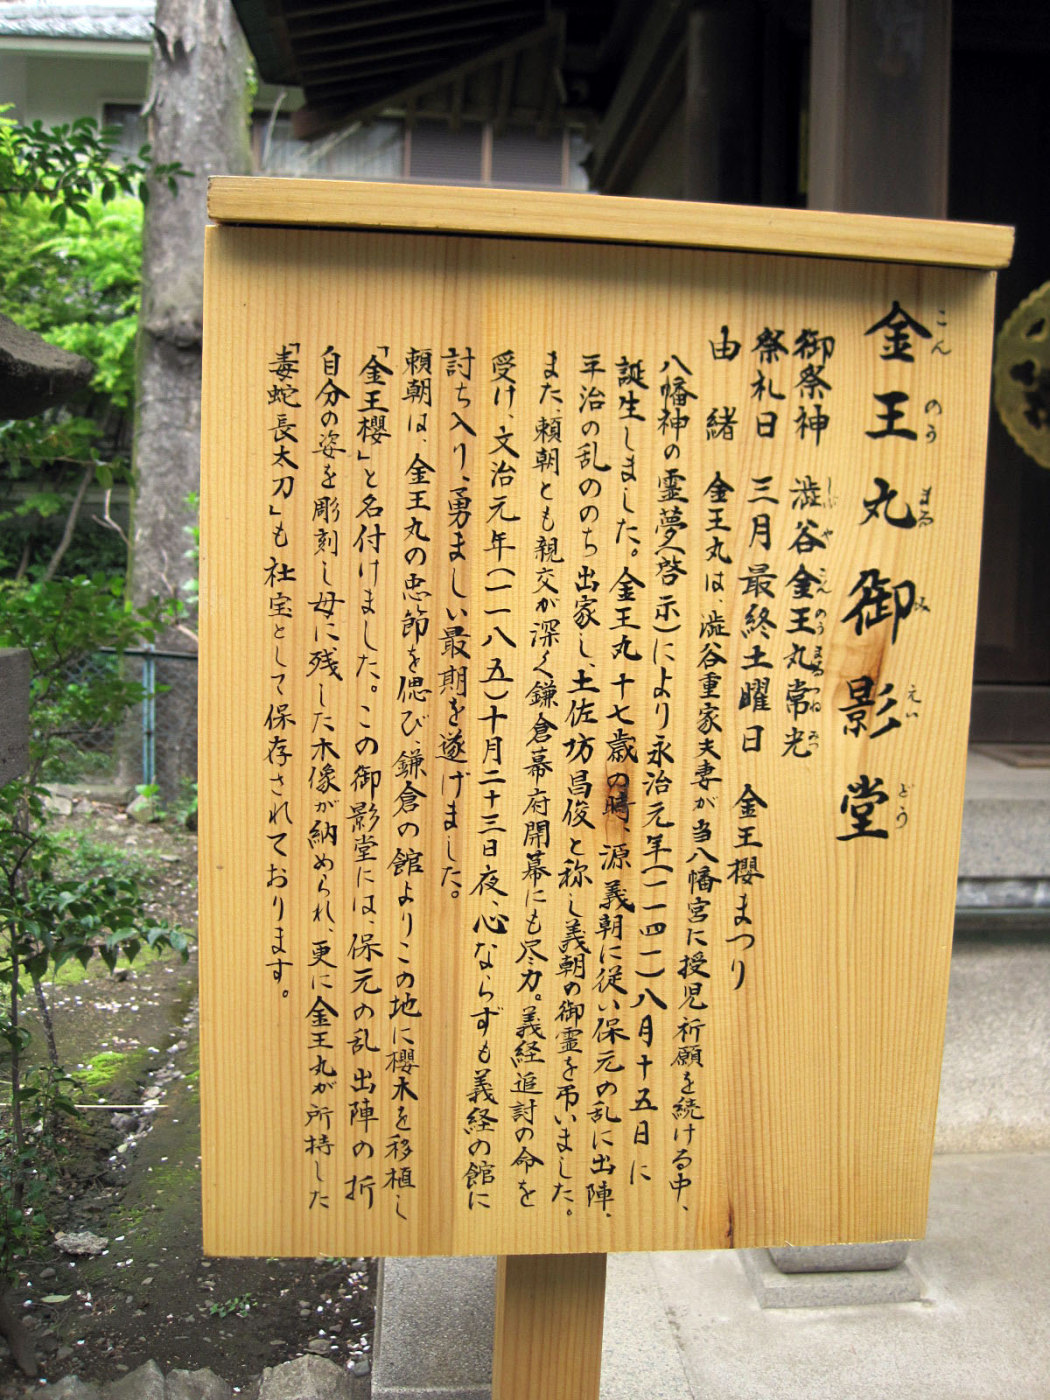 金王丸御影堂
こんのうまるみえいどう
御祭神　澁谷金王丸常光
しぶやこんのうまるつねみつ
祭礼日　三月最終土曜日　金王櫻まつり
由　緒　金王丸は、澁谷重家夫妻が当八幡宮に授児祈願を続ける中、
八幡神の霊夢（啓示）により永治元年（一一四一）八月十五日に
誕生しました。金王丸十七歳の時、源義朝に従い保元の乱に出陣、
平治の乱ののち出家し、土佐坊昌俊と称し義朝の御霊を弔いました。
また、頼朝とも親交が深く鎌倉幕府開幕にも尽力。義経追討の命を
受け、文治元年（一一八五）十月二十三日夜、心ならずも義経の館に
討ち入り、勇ましい最期を遂げました。
頼朝は、金王丸の忠節を偲び、鎌倉の館よりこの地に櫻木を移植し
「金王櫻」と名付けました。この御影堂には、保元の乱出陣の折
自分の姿を彫刻し母に残した木像が納められ、更に金王丸が所持した
「毒蛇長太刀」も社宝として保存されております。